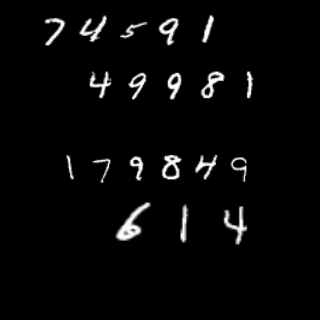 74591
49981
179849
614